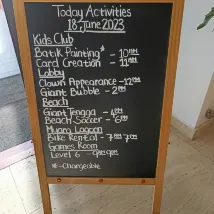 Today Activities
18 June 2023
Kids Club
Batik Painting* - 10AM
Card Creation - 11AM
Lobby
Clown Appearance - 12PM
Giant Bubble - 2PM
Beach
Giant Jengga - 4PM
Beach Soccer - 6PM
Muara Lagoon
Bike Rental - 7AM-7PM
Games Room
Level 6 - 9AM-9PM
*-Chargeable